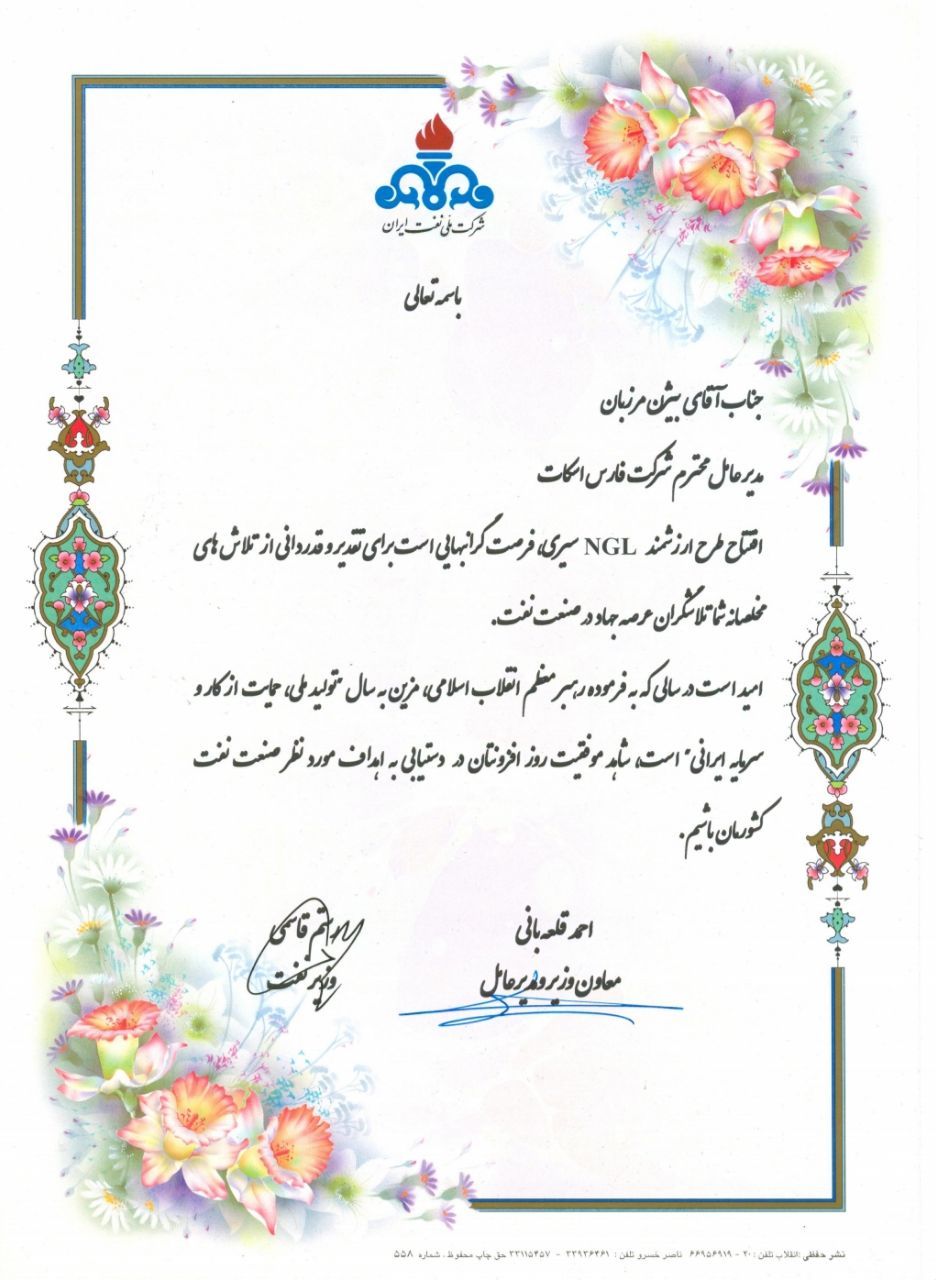 شرکت ملی نفت ایران
باسمه تعالی
جناب آقای بیژن مرزبان
مدیرعامل محترم شرکت فارس اسکات
افتتاح طرح ارزشمند NGL سیری، فرصت گرانبهایی است برای تقدیر و قدردانی از تلاش های
مخلصانه شما تلاشگران عرصه جهاد در صنعت نفت.
امید است در سالی که به فرموده رهبر معظم انقلاب اسلامی، مزین به سال "تولید ملی، حمایت از کار و
سرمایه ایرانی" است، شاهد موفقیت روز افزونتان در دستیابی به اهداف مورد نظر صنعت نفت
کشورمان باشیم.
احمد قلعه بانی
معاون وزیر و مدیرعامل
رستم قاسمی
وزیر نفت
نشر حفظی :انقلاب تلفن : ۲۰ - ۶۶۹۵۶۹۱۹ ناصر خسرو تلفن : ۳۳۹۳۶۴۶۱ - ۳۳۱۱۵۴۵۷ حق چاپ محفوظ . شماره ۵۵۸